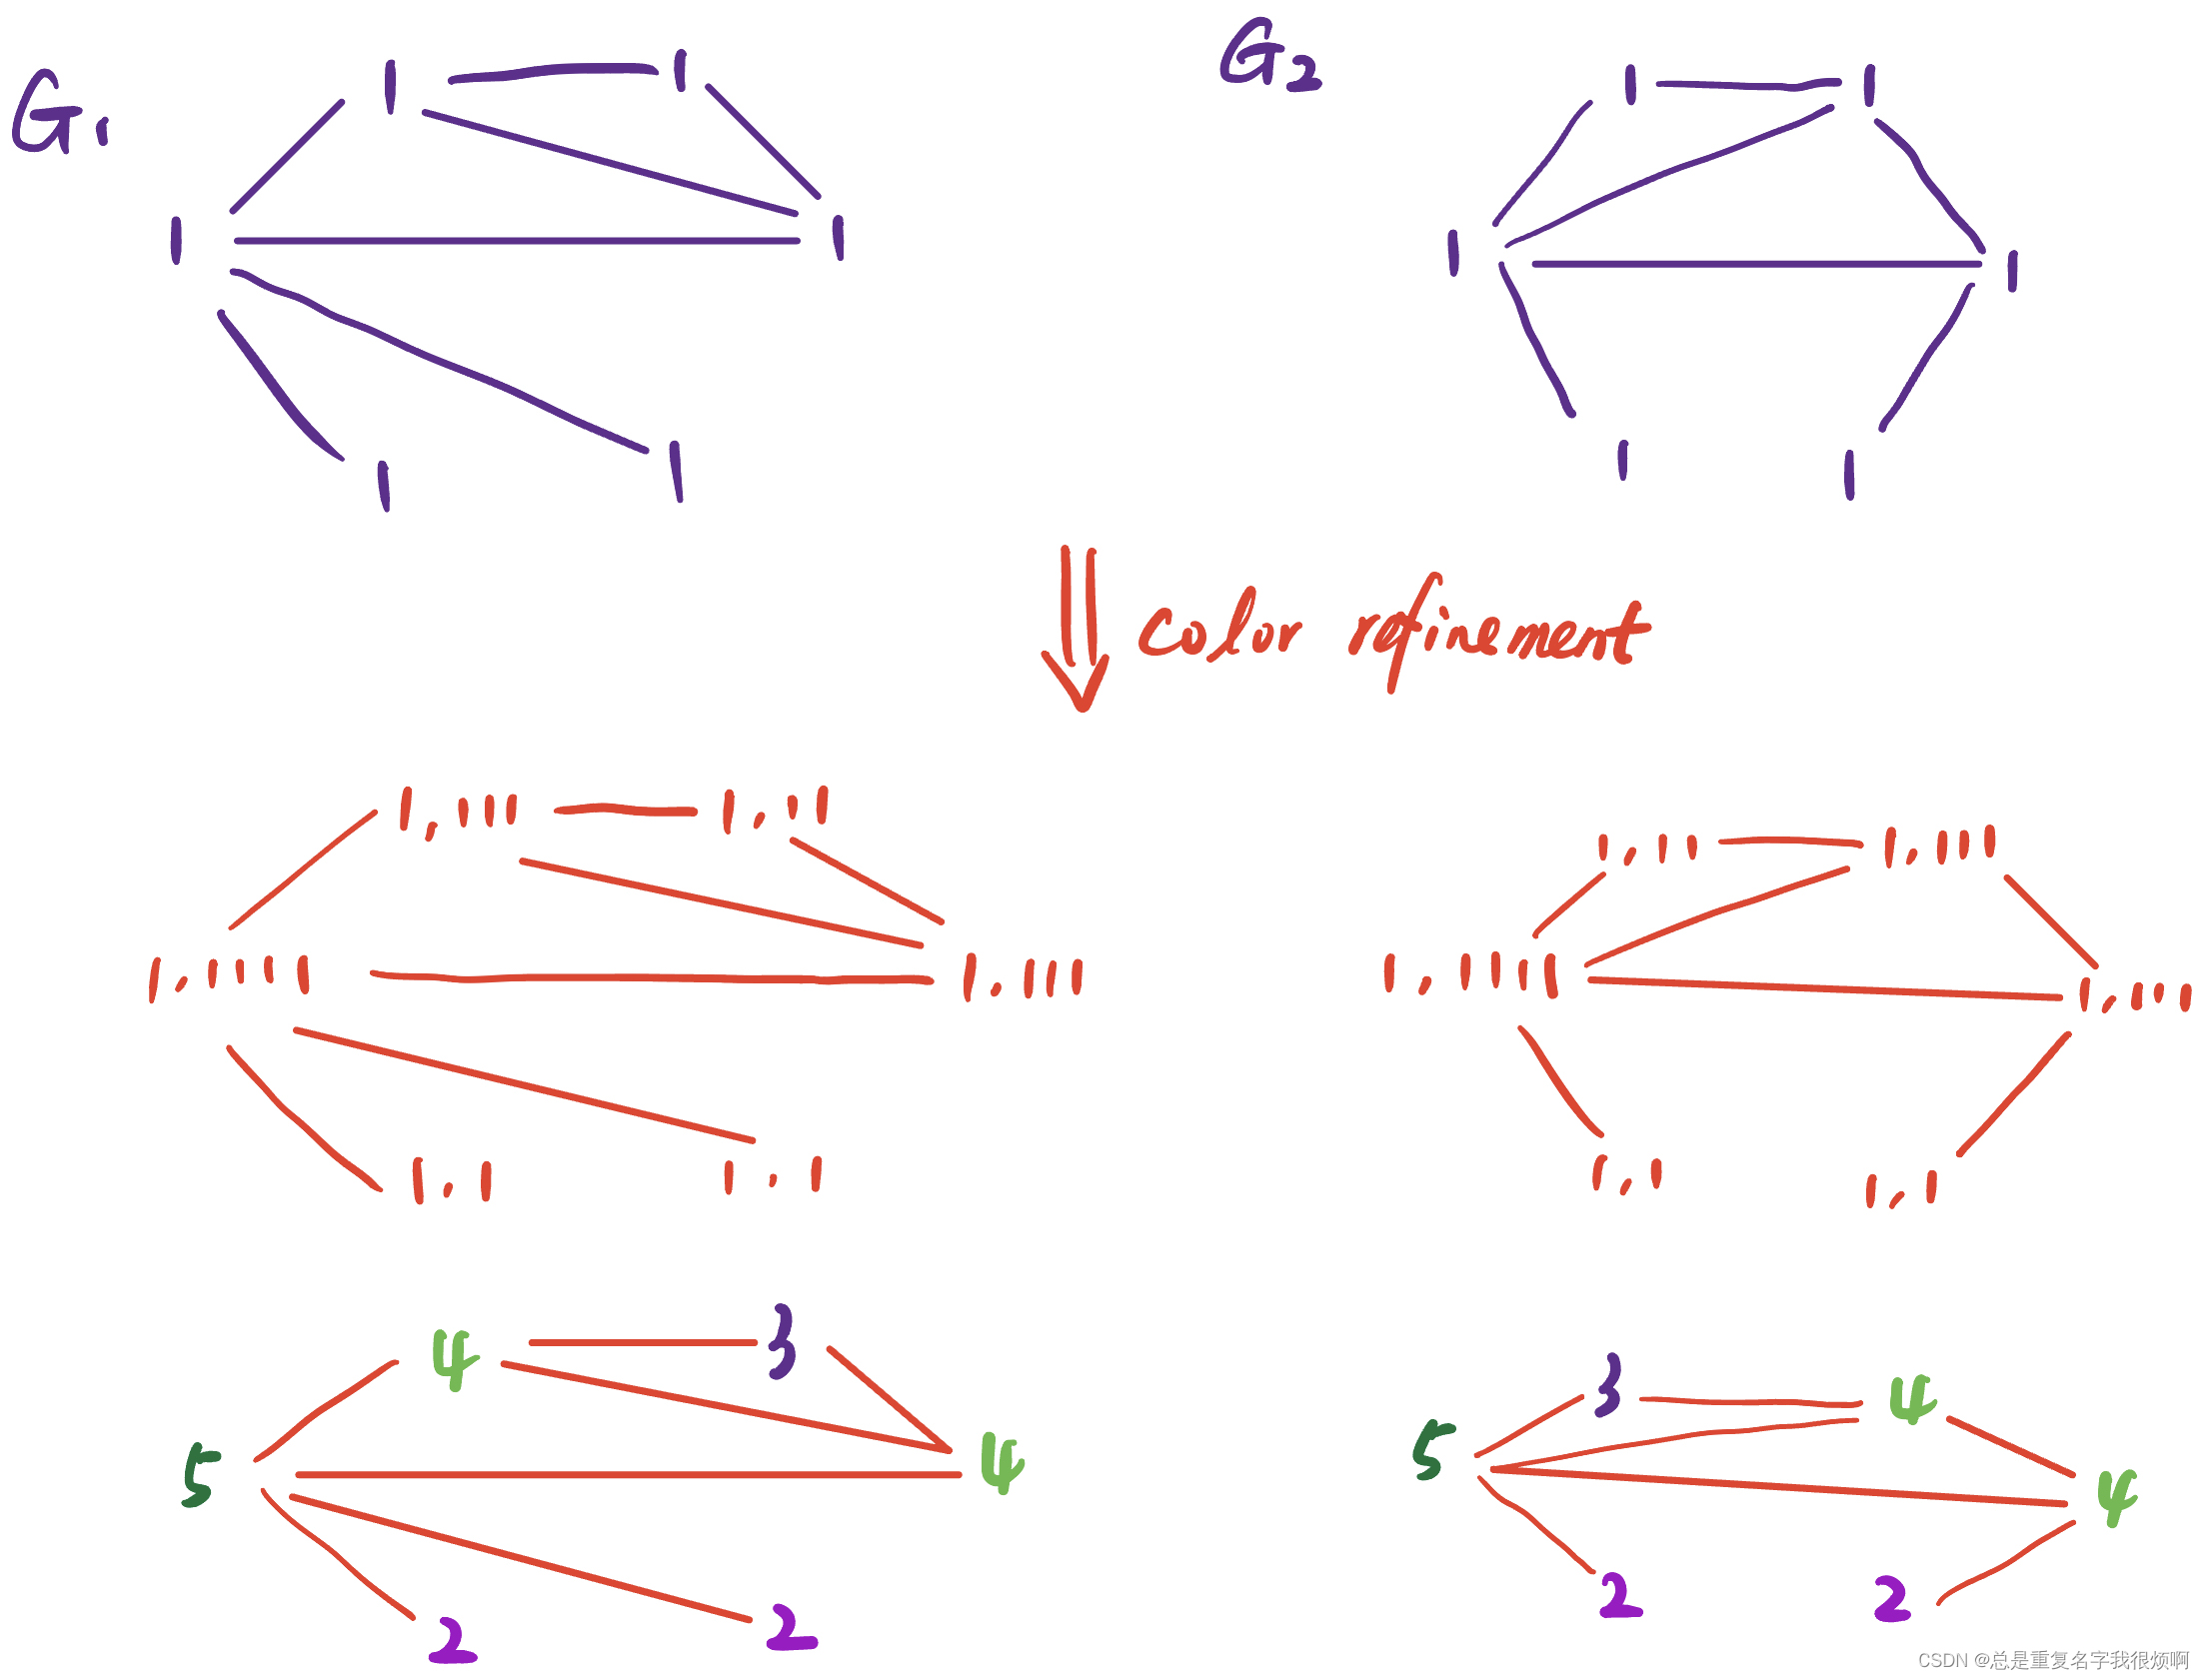 G1
G2
1 1
1 1
1 1
1 1
1 1
1 1
color refinement
1,111 1,11
1,11 1,111
1,1111 1,111
1,1111 1,111
1,1 1,1
1,1 1,1
4 3
3 4
5 4
5 4
2 2
2 2
CSDN @总是重复名字我很烦啊